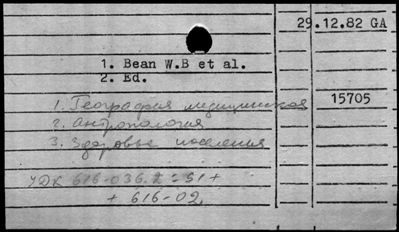 29.12.82 GA
1. Bean W.B et al.
2. Ed.
1. География медицинская 15705
2. Антропология
3. Здоровье населения
УДК 616-036.2 = 51 +
+ 616-02